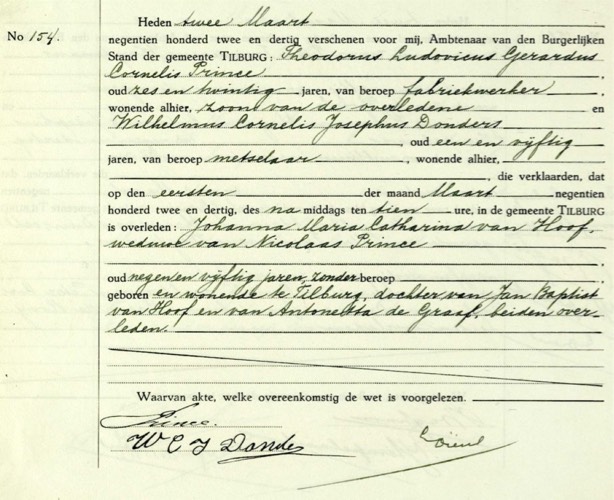 Heden twee Maart
No 154.
negentien honderd twee en dertig verschenen voor mij, Ambtenaar van den Burgerlijken
Stand der gemeente TILBURG: Theodorus Ludovicus Gerardus
Cornelis Prince
oud zes en twintig jaren, van beroep fabriekwerker,
wonende alhier, zoon van de overledene en
Wilhelmus Cornelis Josephus Donders
, oud een en vijftig
jaren, van beroep metselaar, wonende alhier,
, die verklaarden, dat
op den eersten der maand Maart negentien
honderd twee en dertig, des na middags ten tien ure, in de gemeente TILBURG
is overleden: Johanna Maria Catharina van Hoof,
weduwe van Nicolaas Prince
oud negen en vijftig jaren, zonder beroep
geboren en wonende te Tilburg, dochter van Jan Baptist
van Hoof en van Antonetta de Graaf, beiden over-
leden.
Waarvan akte, welke overeenkomstig de wet is voorgelezen.
Prince.
W C J Donders